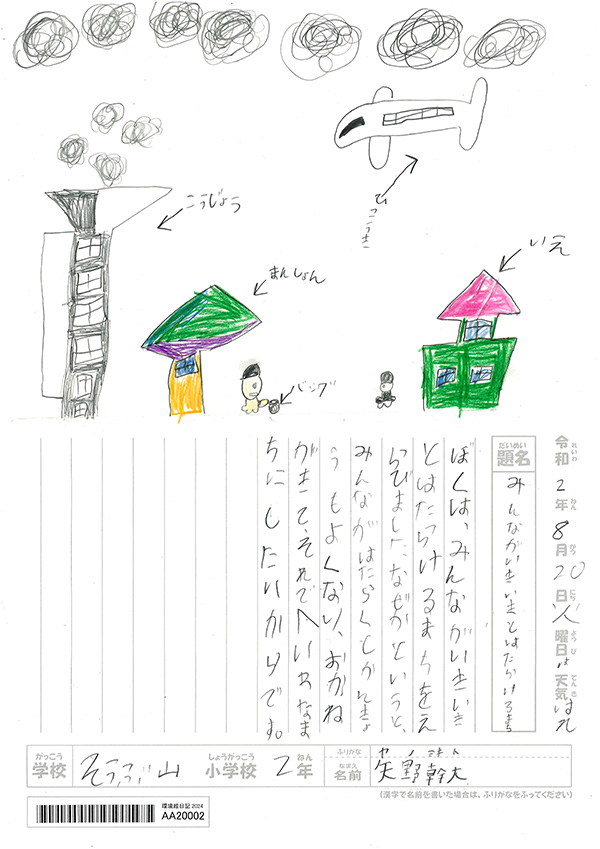 こうじょう
ひこうき
いえ
まんしょん
バッグ
令和 2年 8月 20日 火曜日 天気 はれ
れいわ ねん がつ にち ようび てんき
だいめい
題名
みんながいきいきとはたらけるまち
ぼくは、みんながいきいき
とはたらけるまちをえ
らびました。なぜかというと、
みんながはたらくとかんきょ
うもよくなり、おかね
がきて、それでへいわなま
ちにしたいからです。
がっこう しょうがっこう ねん ふりがな ヤノ
学校 山 小学校 2年 なまえ 名前 矢野幹大
(漢字で名前を書いた場合は、ふりがなをふってください)
環境絵日記2024
AA20002